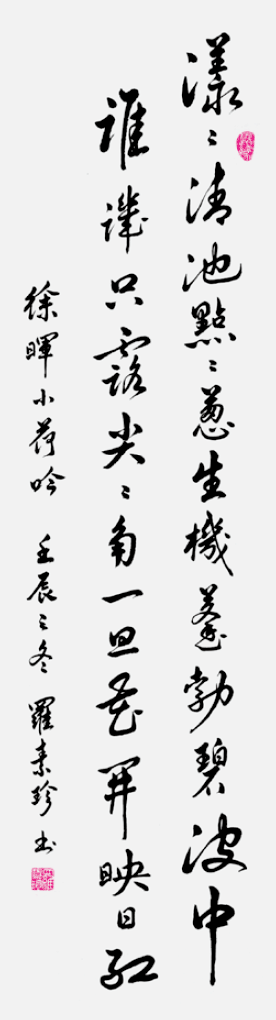 漾漾清池點點蔥生機蓬勃碧波中
誰譏只露尖尖角一旦花開映日紅
徐暉小荷吟 壬辰之冬 羅素珍书